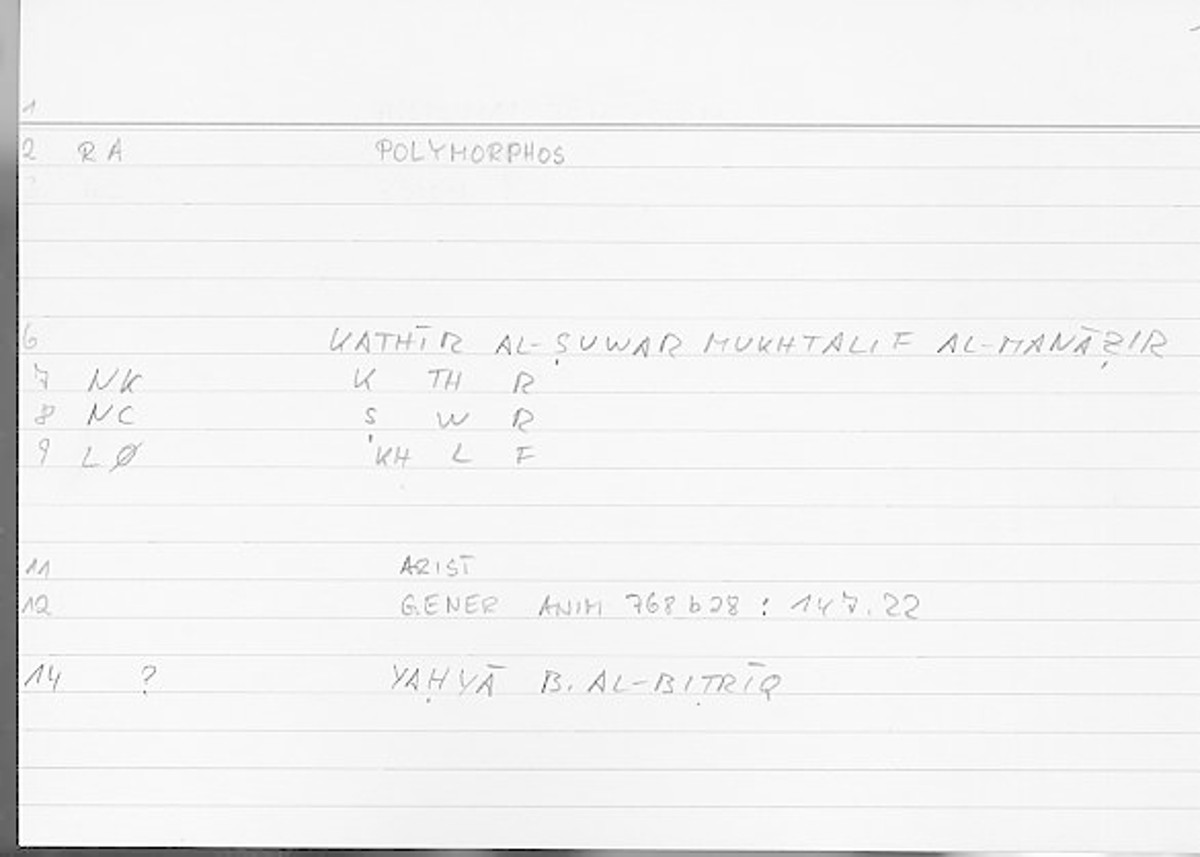 1
2 RA POLYMORPHOS
6 KATHĪR AL-ṢUWAR MUKHTALIF AL-MANĀẒIR
7 NK K TH R
8 NC Ṣ W R
9 LØ KH L F
11 ARIST
12 GENER ANIM 768 b 28 : 147.22
14 ? YAḤYĀ B. AL-BIṬRĪQ